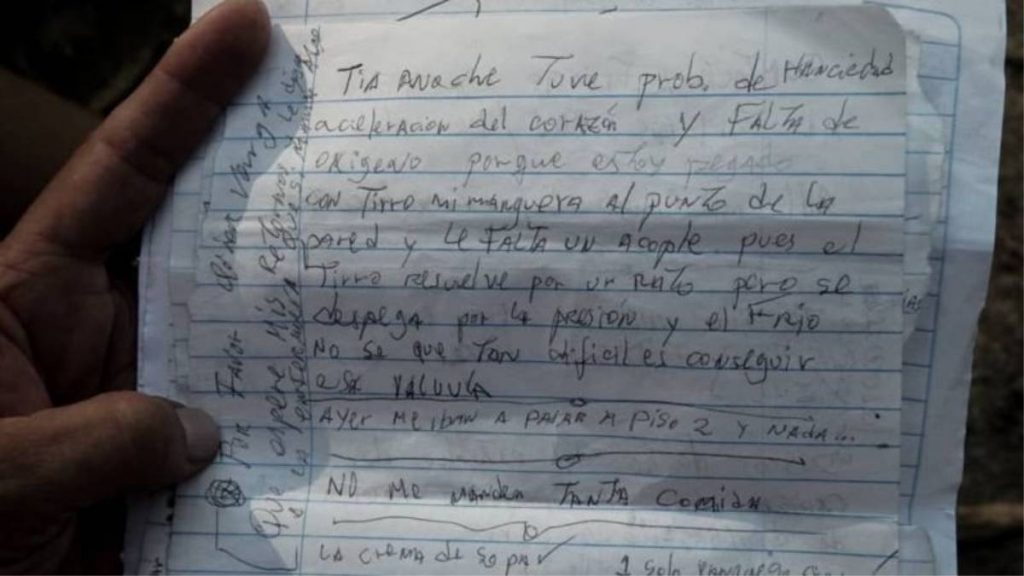 Tia anoche Tuve prob. de Hanciedad
aceleracion del corazón y FALTA de
oxigeno porque estoy pegado
con Tirro mi manguera al punto de la
pared y le FALTA un acople pues el
Tirro resuelve por un rato pero se
despega por la presión y el Frio
No se que Tan dificil es conseguir
esa valvula
Ayer me iban a pasar a piso 2 y nada...
NO me manden TANTA Comida
La crema de sopa
1 solo
Por Favor
que opere mis
a la enfermera